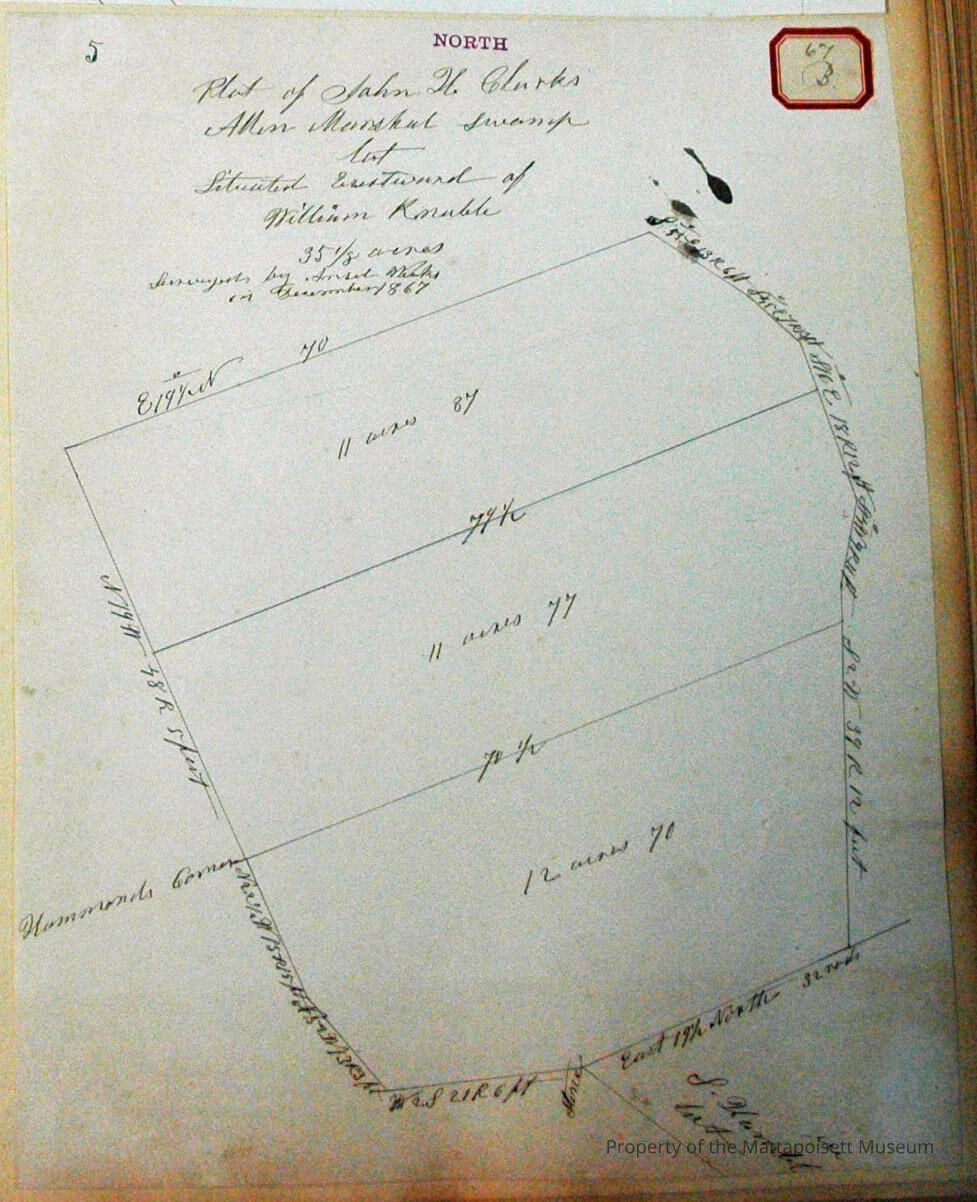 5
NORTH
67
B.
Plat of John H. Clarks
Allen Marshal Swamp
lot
Situated Eastward of
William Knuble
35 1/3 acres
Surveyed by Ansel Weeks
in December 1867
E 19 1/2 N
70
11 acres 87
79 1/2
11 acres 77
N 19 W 48 R 5 feet
S 2 W 39 R 12 feet
70 1/2
12 acres 70
Hammonds Corner
W 2 S 21 R 6 ft
Stone
East 19 1/2 North 32 rods
S.
lot
Property of the Mattapoisett Museum